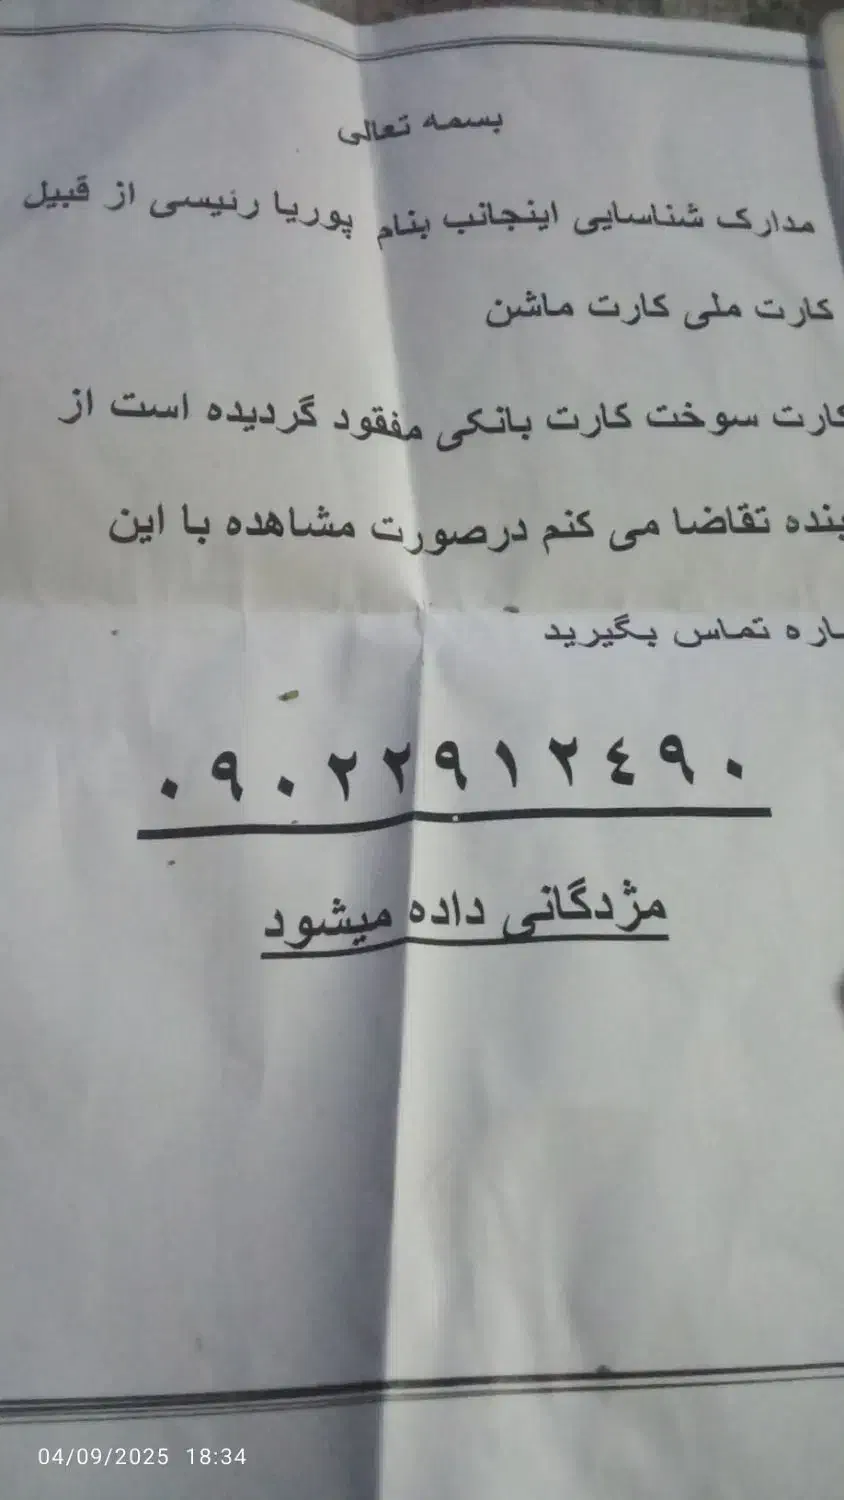 بسمه تعالی
مدارک شناسایی اینجانب بنام پوریا رئیسی از قبیل
کارت ملی کارت ماشن
کارت سوخت کارت بانکی مفقود گردیده است از
بنده تقاضا می کنم درصورت مشاهده با این
تماس بگیرید
٠٩٠٢٢٩١٢٤٩٠
مژدگانی داده میشود
04/09/2025 18:34